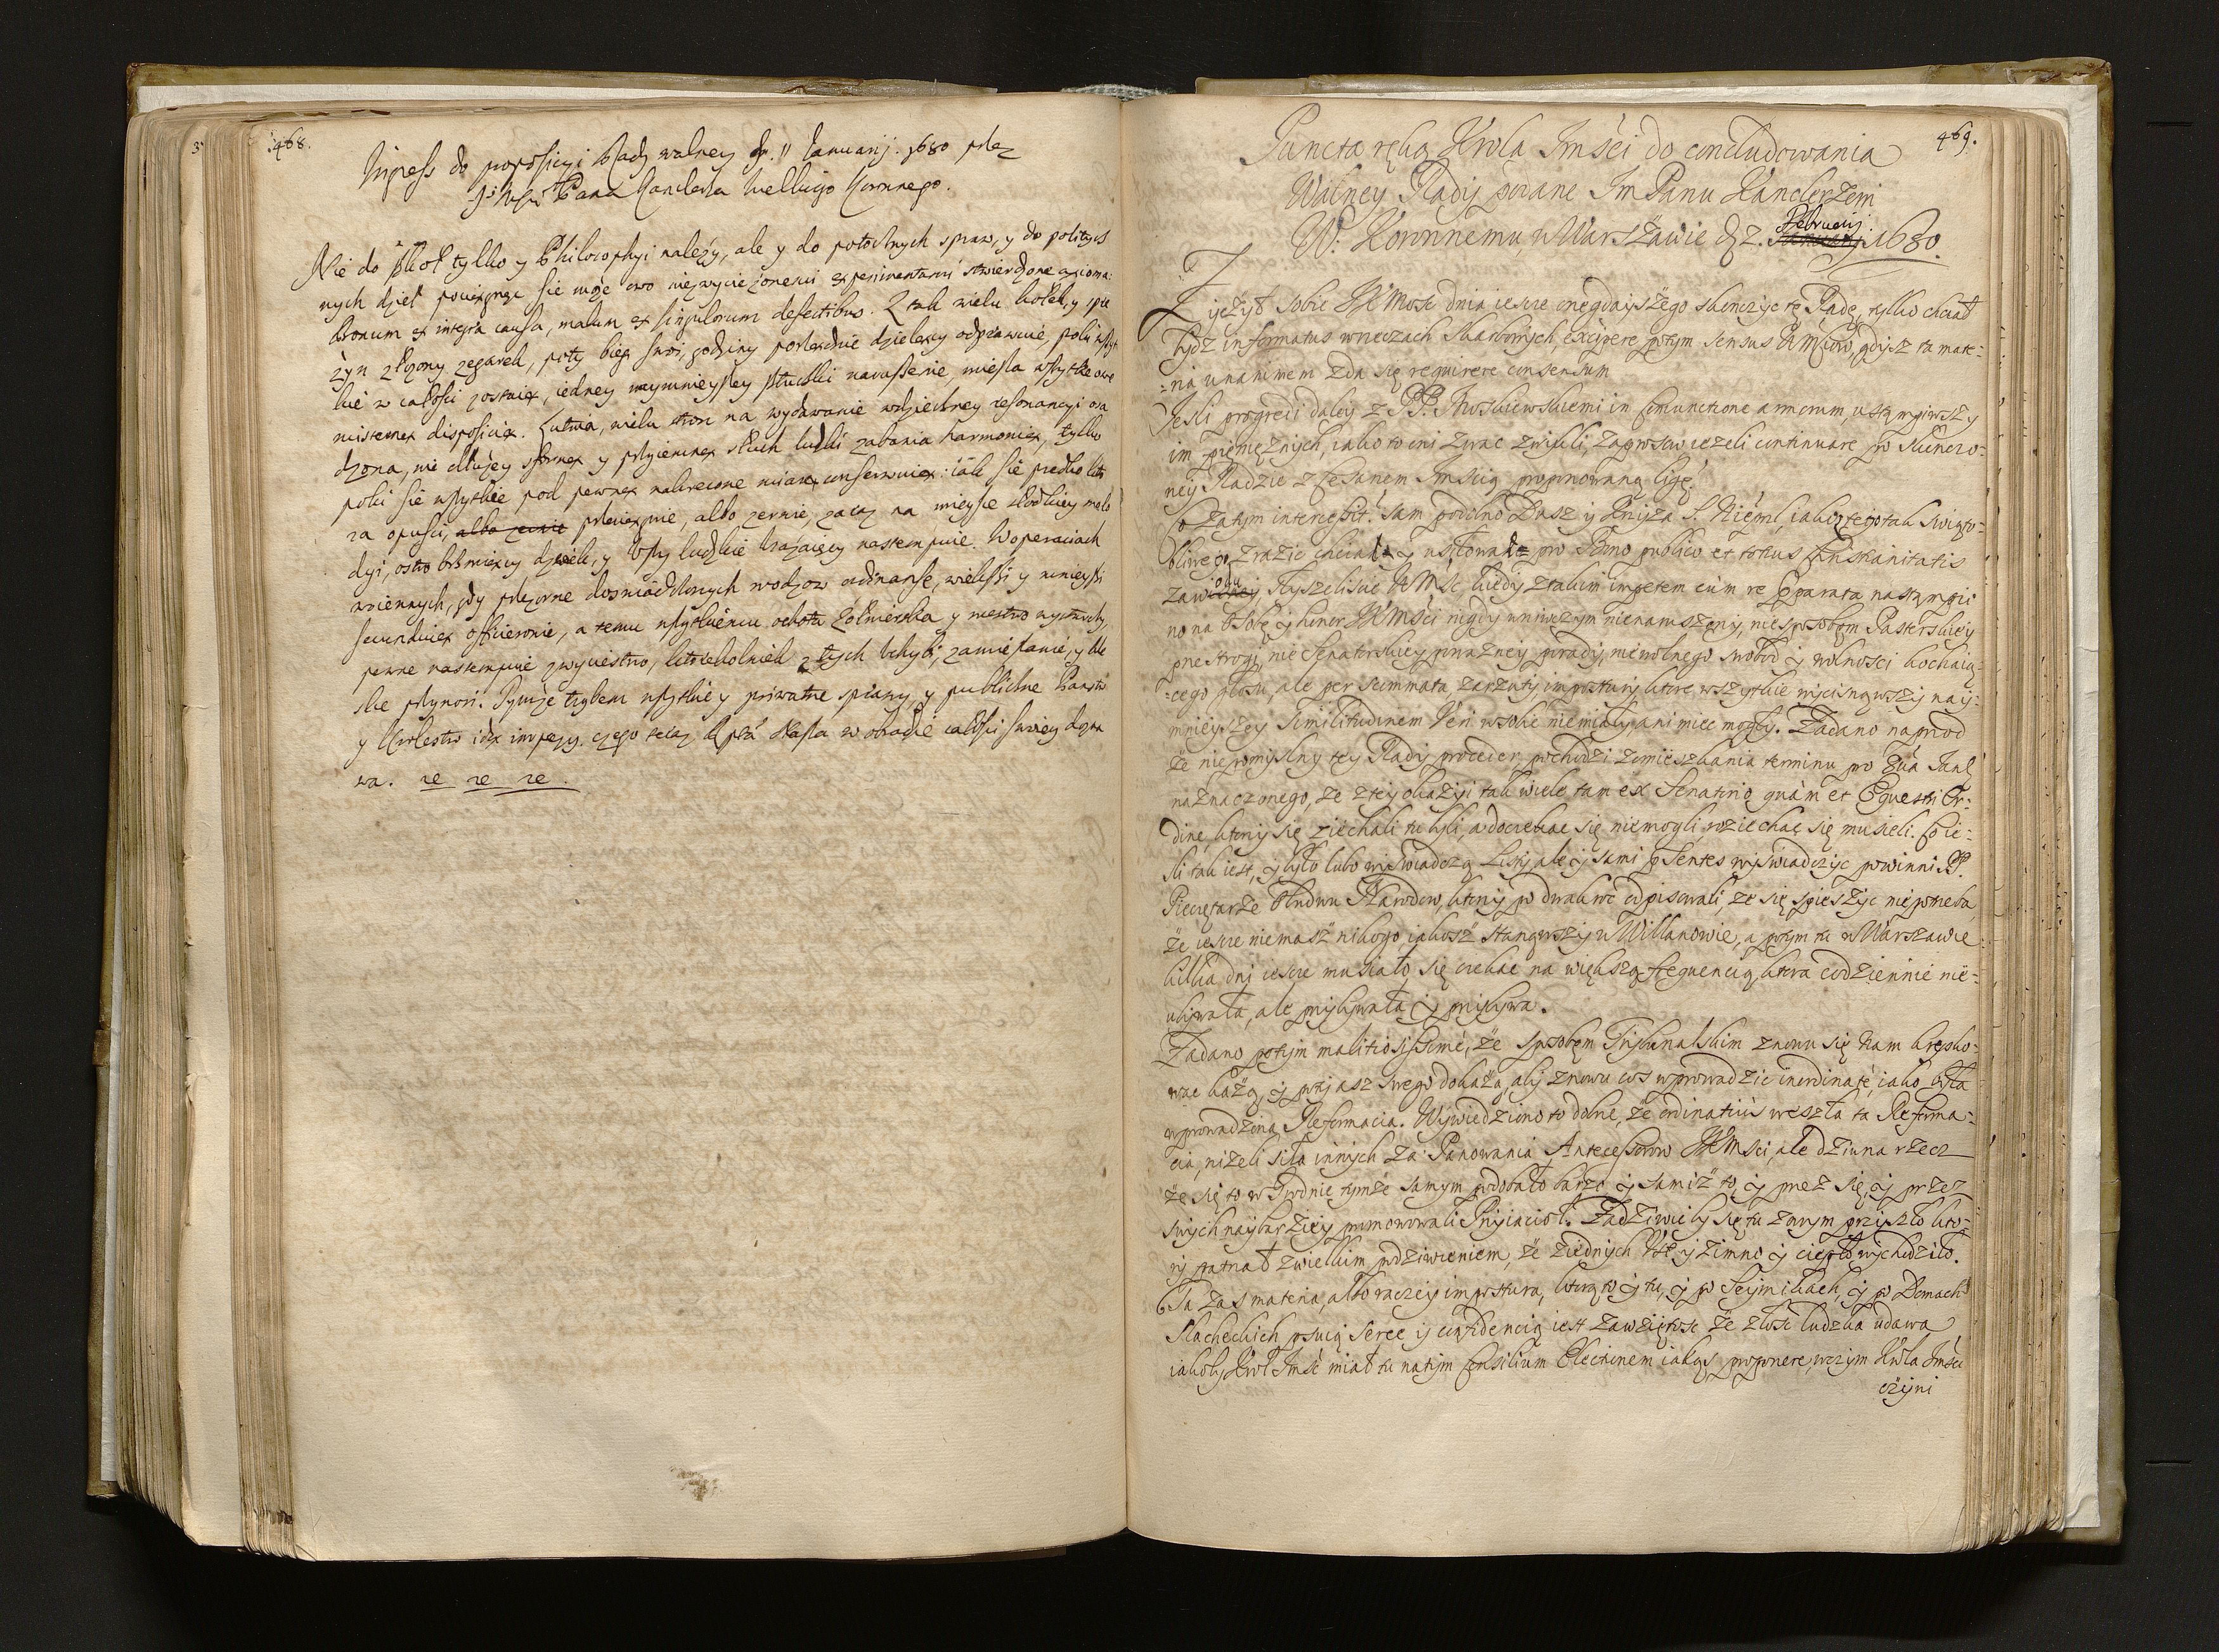 468.
Ingress do propositiy Rady walney d. 11 Januarij. 1680 przez
Jo Mści Pana Kanclerza Wielkiego Koronnego.
Nie do szkoł tylko y Philosophyi należy, ale y do potocznych spraw, y do politycz
nych dzieł pociągnąc sie może owo niezwyciężonemi experimentami stwierdzone axioma:
bonum ex integra causa, malum ex singulorum defectibus. Z tak wielu kołek, y sprę
żyn złożony zegarek, poty bieg swoi, godziny porządnie dzielący odprawuie, poki wszyt
kie w całości zostaią, iedney naymnieyszey sztuczki naruszenie, miesza wszytkę owę
misterną disposicią. Lutnia, wielu stron na wydawanie wdzięczney resonancyi osa
dzona, nie dłużey sforną y przyiemną słuch ludzki zabawia harmonią, tylko
poki sie wszytkie pod pewną nakręcone miarą conserwuią: iak sie prędko kto
ra opuści, albo zerwie przeciągnie, albo zerwie, zaraz na mieysce słodkiey melo
dyi, ostro brzmiący dzwięk, y uszy ludzkie urażaiący nastempuie. W operaciach
woiennych, gdy przezorne doswiadczonych wodzow ordinanse, wieksi y mnieysi
secunduią officierowie, a temu wszytkiemu ochota żołnierska y męstwo wystarczy,
pewne nastempuie zwycięstwo, ktorekolwiek z tych uchybi, zamieszanie, y klę
skę przynosi. Tymże trybem wszytkie y priwatne sprawy y publiczne Państw
y Krolestw idą impezy. czego teraz Rptá Nasza w obradzie całości swoiey dozna
wa. re re re.
469.
Puncta ręką Krola Jmści do concludowania
Walney Rady podane Jm Panu Kanclerzowi
W: Koronnemu, w Warszawie d. 2. Januarij Februarij. 1680.
Życzył sobie JKMość dnia iescze onegdayszego skonczyc tę Radę, tylko chciał
bydz informatus w rzeczach Skarbowych, excipere potym sensus WMciow, gdysz ta mate=
=ria unanimem zda się requirere consensum
Jesli progredi daley z PP. Moskiewskiemi in coniunctione armorum, ustąpiwszy
im pieniężnych, iako to oni zwac zwykli, Zaprosow iezeli continuare po skonczo=
ney Radzie z Cesarzem Jmscią proponowaną ligę.
Co zatym intercessit. sam podobno Dusz y Xiąża S. Michał iakoby tego tak Swiąto=
bliwego, zrazic chciał y usiłował pro Bono publico et totius Christianitatis
zawziętey, słyszeliscie WMść, kiedy z takim impetem cum re separata nastąpio
no na Osobę y honor JKMści nigdy w niwczym nienaruszony, nie sposobem Pasterskiey
przestrogi, nie Senatorskiey poważney porady, nie wolnego swobod y wolności kochaią=
=cego głosu, ale per scommata, zarzuty, impostury, ktore wszytkie wycisnąwszy naij=
mnieyszey similitudinem Veri w sobie niemiały, ani miec mogły. Zadano naprzod
że niepomyslny tey Rady proceder pochodzi z omieszkania terminu pro 8ua Janu
naznaczonego, że z tey okazyi tak wiele tam ex Senatorio quàm et Equestri Or=
dine, ktorzy się ziechali tu byli, a doczekac się niemogli, roziechac się musieli. Co ie=
śli tak iest, y było lubo wyswiadczą Listy, ale y sami praesentes wyswiadczyc powinni PP.
Pieczętarze obudwu Narodow, ktorzy po dwakroc odpisowali, że się spieszyc nie potrzeba
że iescze niemasz nikogo, iakosz stanąwszy w Willanowie, a potym tu w Warszawie
kilka dni iescze musiało się czekac na większą frequencią, ktora codziennie nie=
ubywała, ale przybywała y przybywa.
Zadano potym malitiosissimè, że sposobem Trybunalskim znowu się tam krępko=
wac każą, y potym asz swego dokażą, aby znowu cos wprowadzic inordinatè, iako była
wprowadzona Reformacia. Wywiedziono to dobrze, że ordinatius weszła ta Reforma=
cia, niżeli siła innych za Panowania Antecessorow JKMści, ale dziwna rzecz
że się to w Grodnie tymże samym podobało barzo y samiż to, y przez się, y przez
swych naybarziey promowowali Przyiacioł. Zadziwicby się tu zawym przyszło kto=
ry patrzał z wielkim podziwieniem, że z iednych Ust y zimno y ciepło wychodziło.
Ta zas materia, albo raczey impostura, ktorą to y tu, y po Seymikach, y po Domach
Slacheckich psuią serce y confidencią iest zawziętosc, że złosc ludzka udawa
iakoby Krol Jmśc miał tu na tym Consilium Electionem iakąs proponere, w czym Krola Jmści
czyni